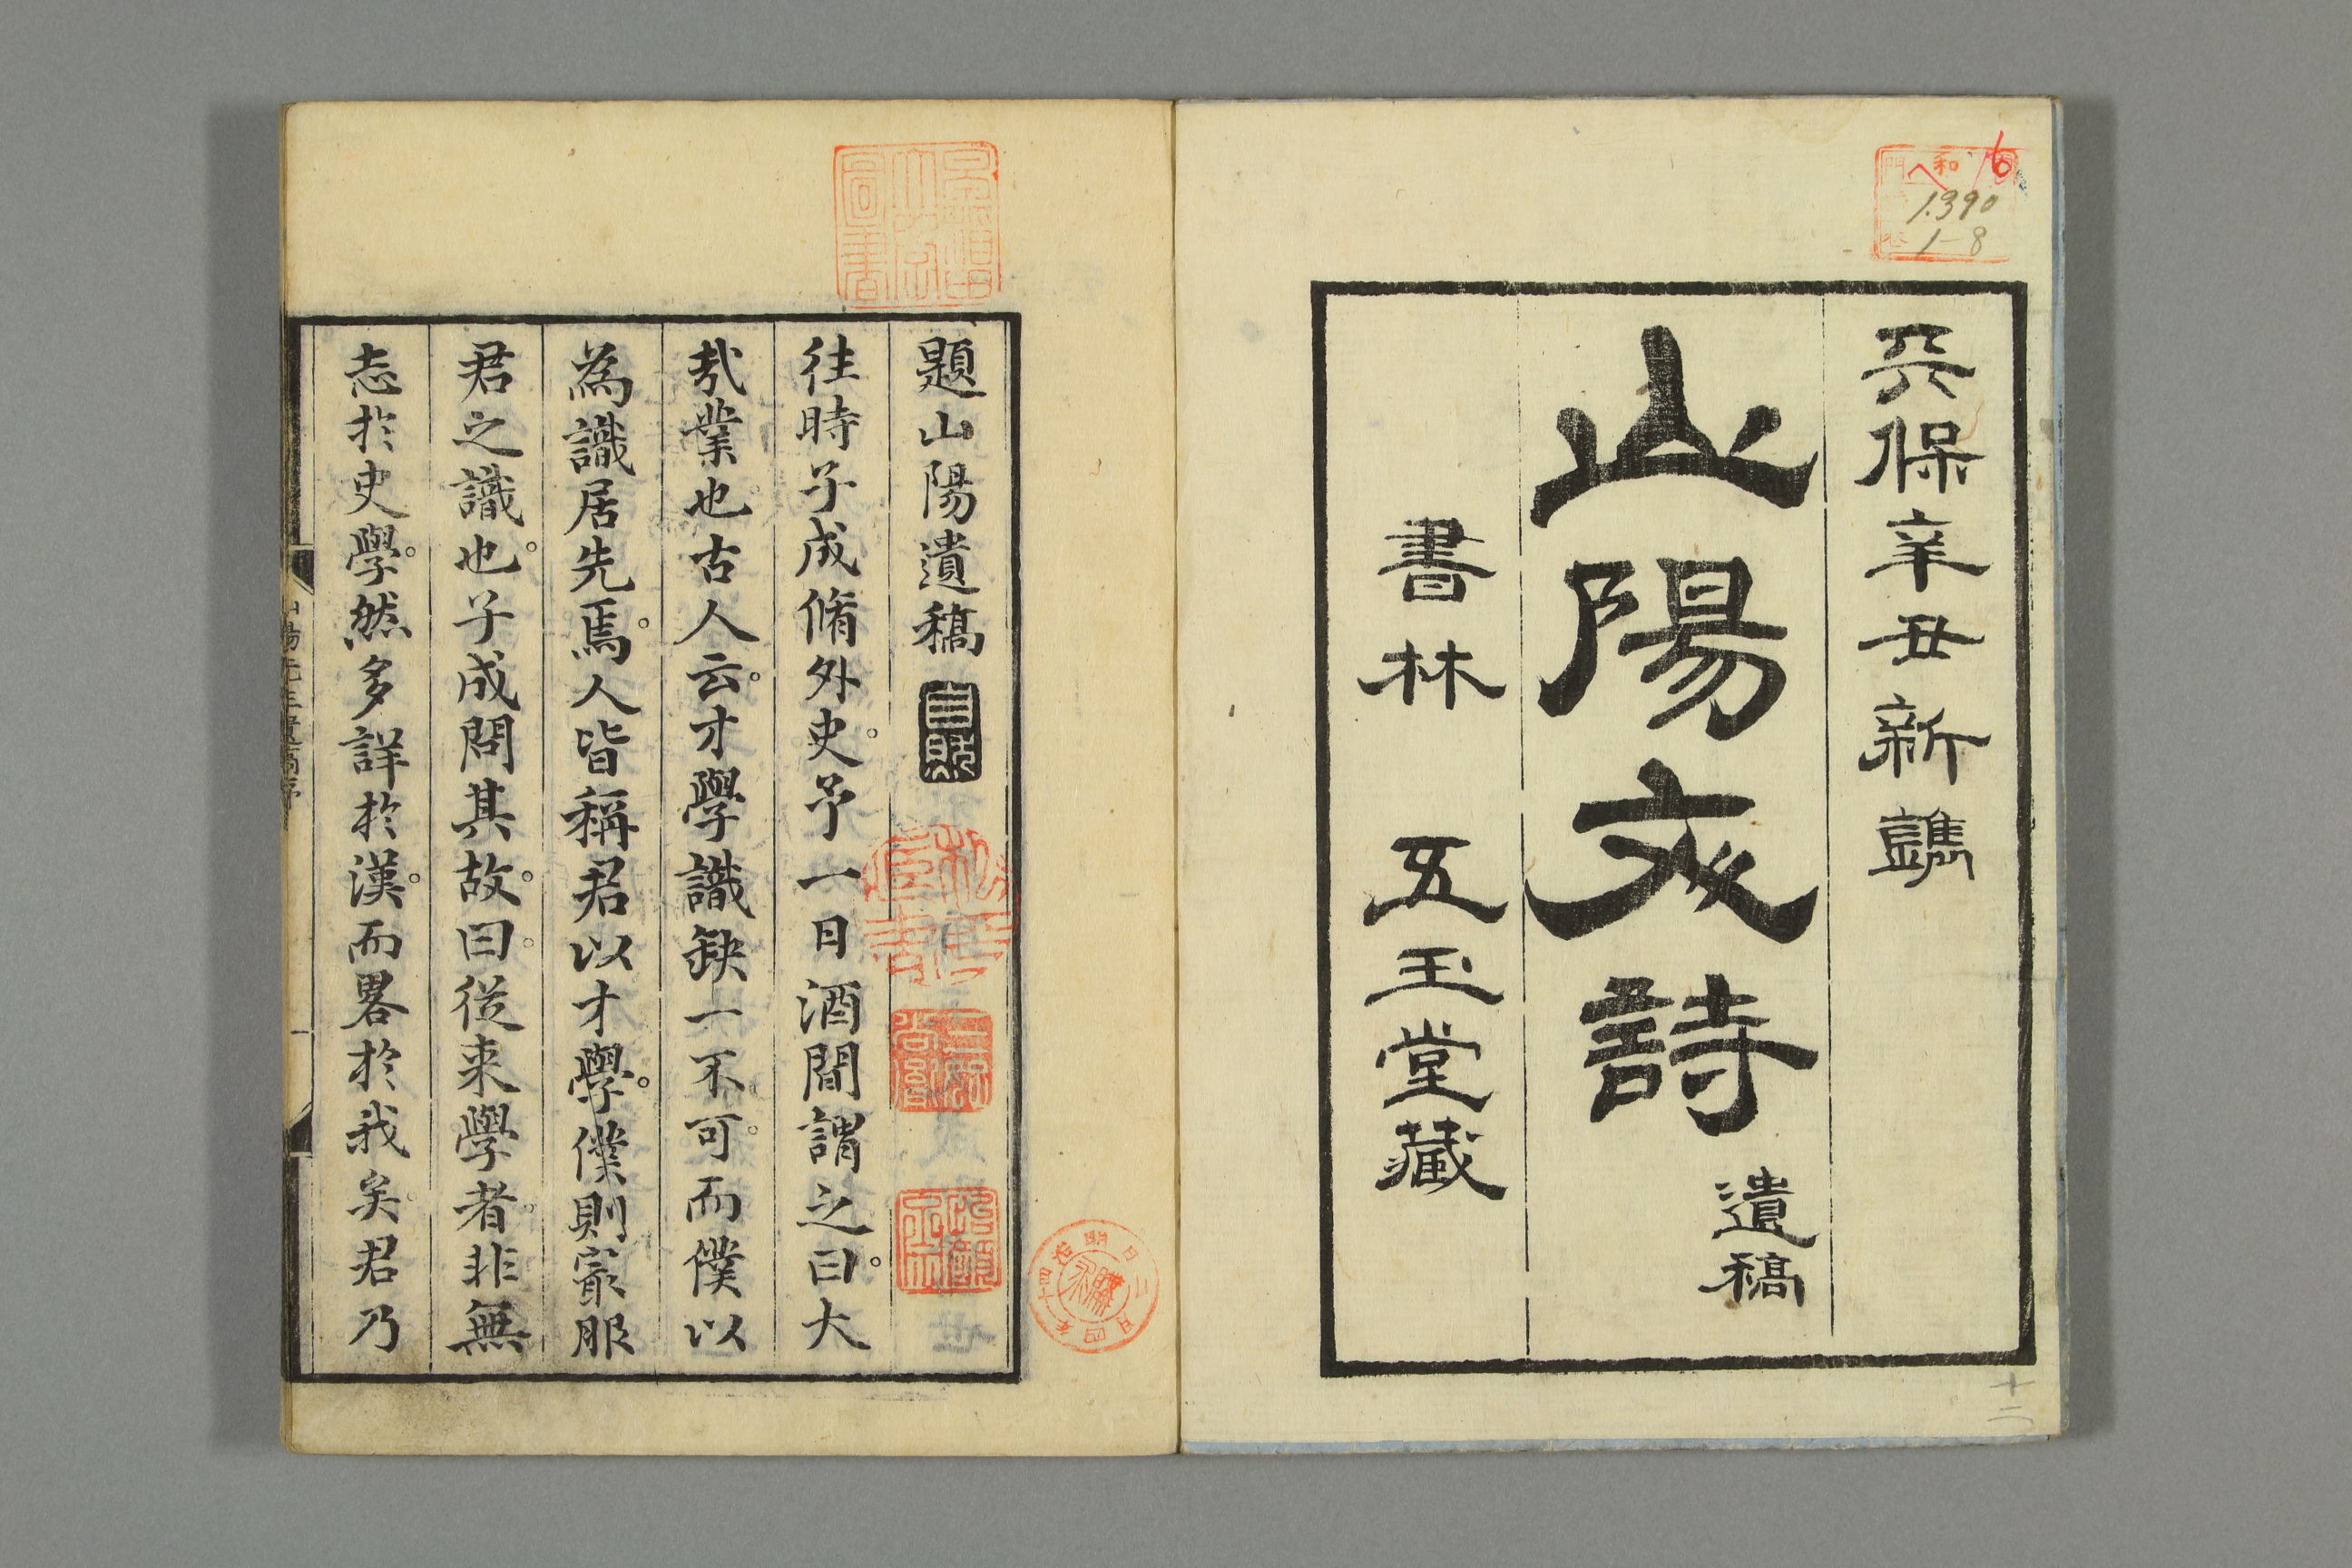 兲保辛丑新鐫
山陽文詩遺稿
書林 五玉堂藏
和
1390
1-8
十二
題山陽遺稿
往時子成脩外史。予一日酒間謂之曰。大
哉業也。古人云。才學識缺一不可。而僕以
為識居先焉。人皆稱君以才學。僕則最服
君之識也。子成問其故。曰。従来學者。非無
志於史學。然多詳於漢。而畧於我矣。君乃